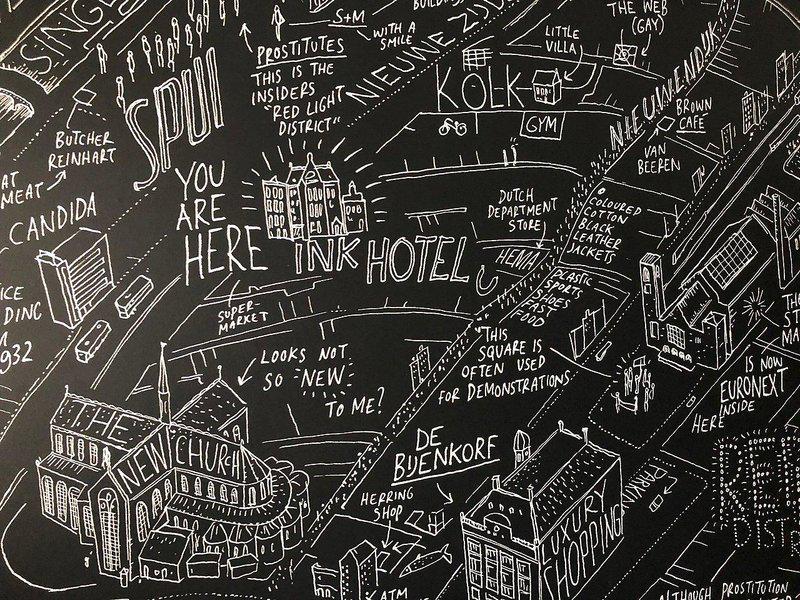 SINGEL
S+M
WITH A
SMILE
BUILDINGS
THE WEB
(GAY)
LITTLE
VILLA
PROSTITUTES
THIS IS THE
INSIDERS
"RED LIGHT
DISTRICT"
NIEUWE ZIJDS
SPUI
KOLK
GYM
NIEUWENDIJK
BROWN
CAFE
VAN
BEEREN
BUTCHER
REINHART
AT
MEAT
CANDIDA
YOU
ARE
HERE
INK HOTEL
DUTCH
DEPARTMENT
STORE
HEMA
COLOURED
COTTON
BLACK
LEATHER
JACKETS
PLASTIC
SPORTS
SHOES
FAST
FOOD
ICE
DING
1932
SUPER-
MARKET
LOOKS NOT
SO "NEW"
TO ME?
"THIS
SQUARE IS
OFTEN USED
FOR DEMONSTRATIONS
IS NOW
EURONEXT
INSIDE
HERE
THE NEW CHURCH
DE
BIJENKORF
HERRING
SHOP
ATM
LUXURY
SHOPPING
PARKING
RED
DIST
ALTHOUGH PROSTITUTION